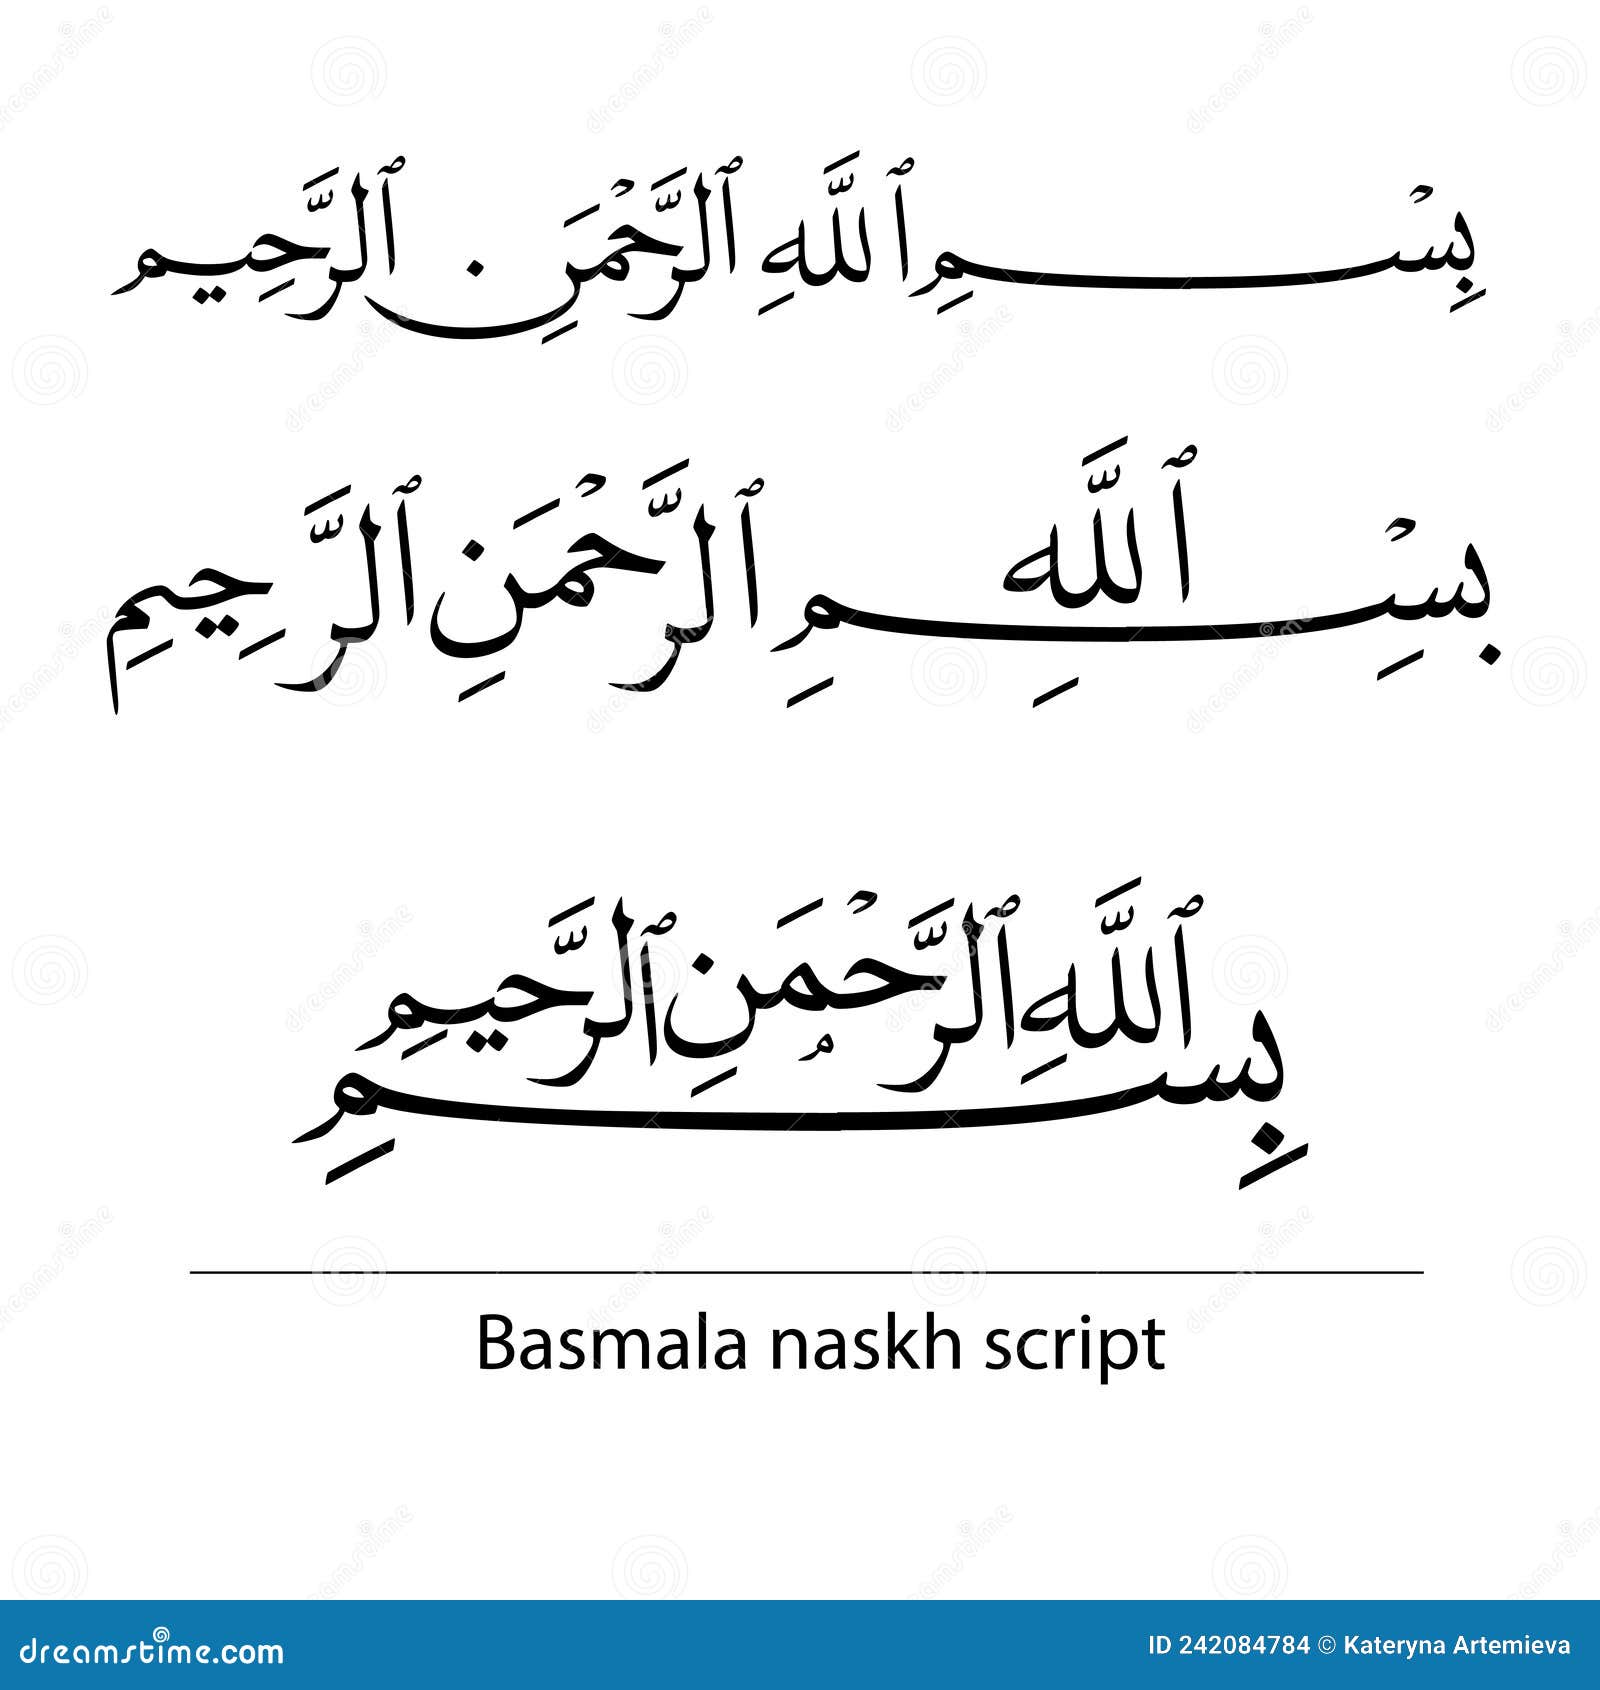 بِسْمِ ٱللَّهِ ٱلرَّحْمَنِ ٱلرَّحِيم
بسْمِ ٱللَّهِ ٱلرَّحْمَنِ ٱلرَّحِيمِ
بِسمِ ٱللَّهِ ٱلرَّحْمَنِ ٱلرَّحِيمِ
Basmala naskh script
dreamstime.com
ID 242084784 © Kateryna Artemieva